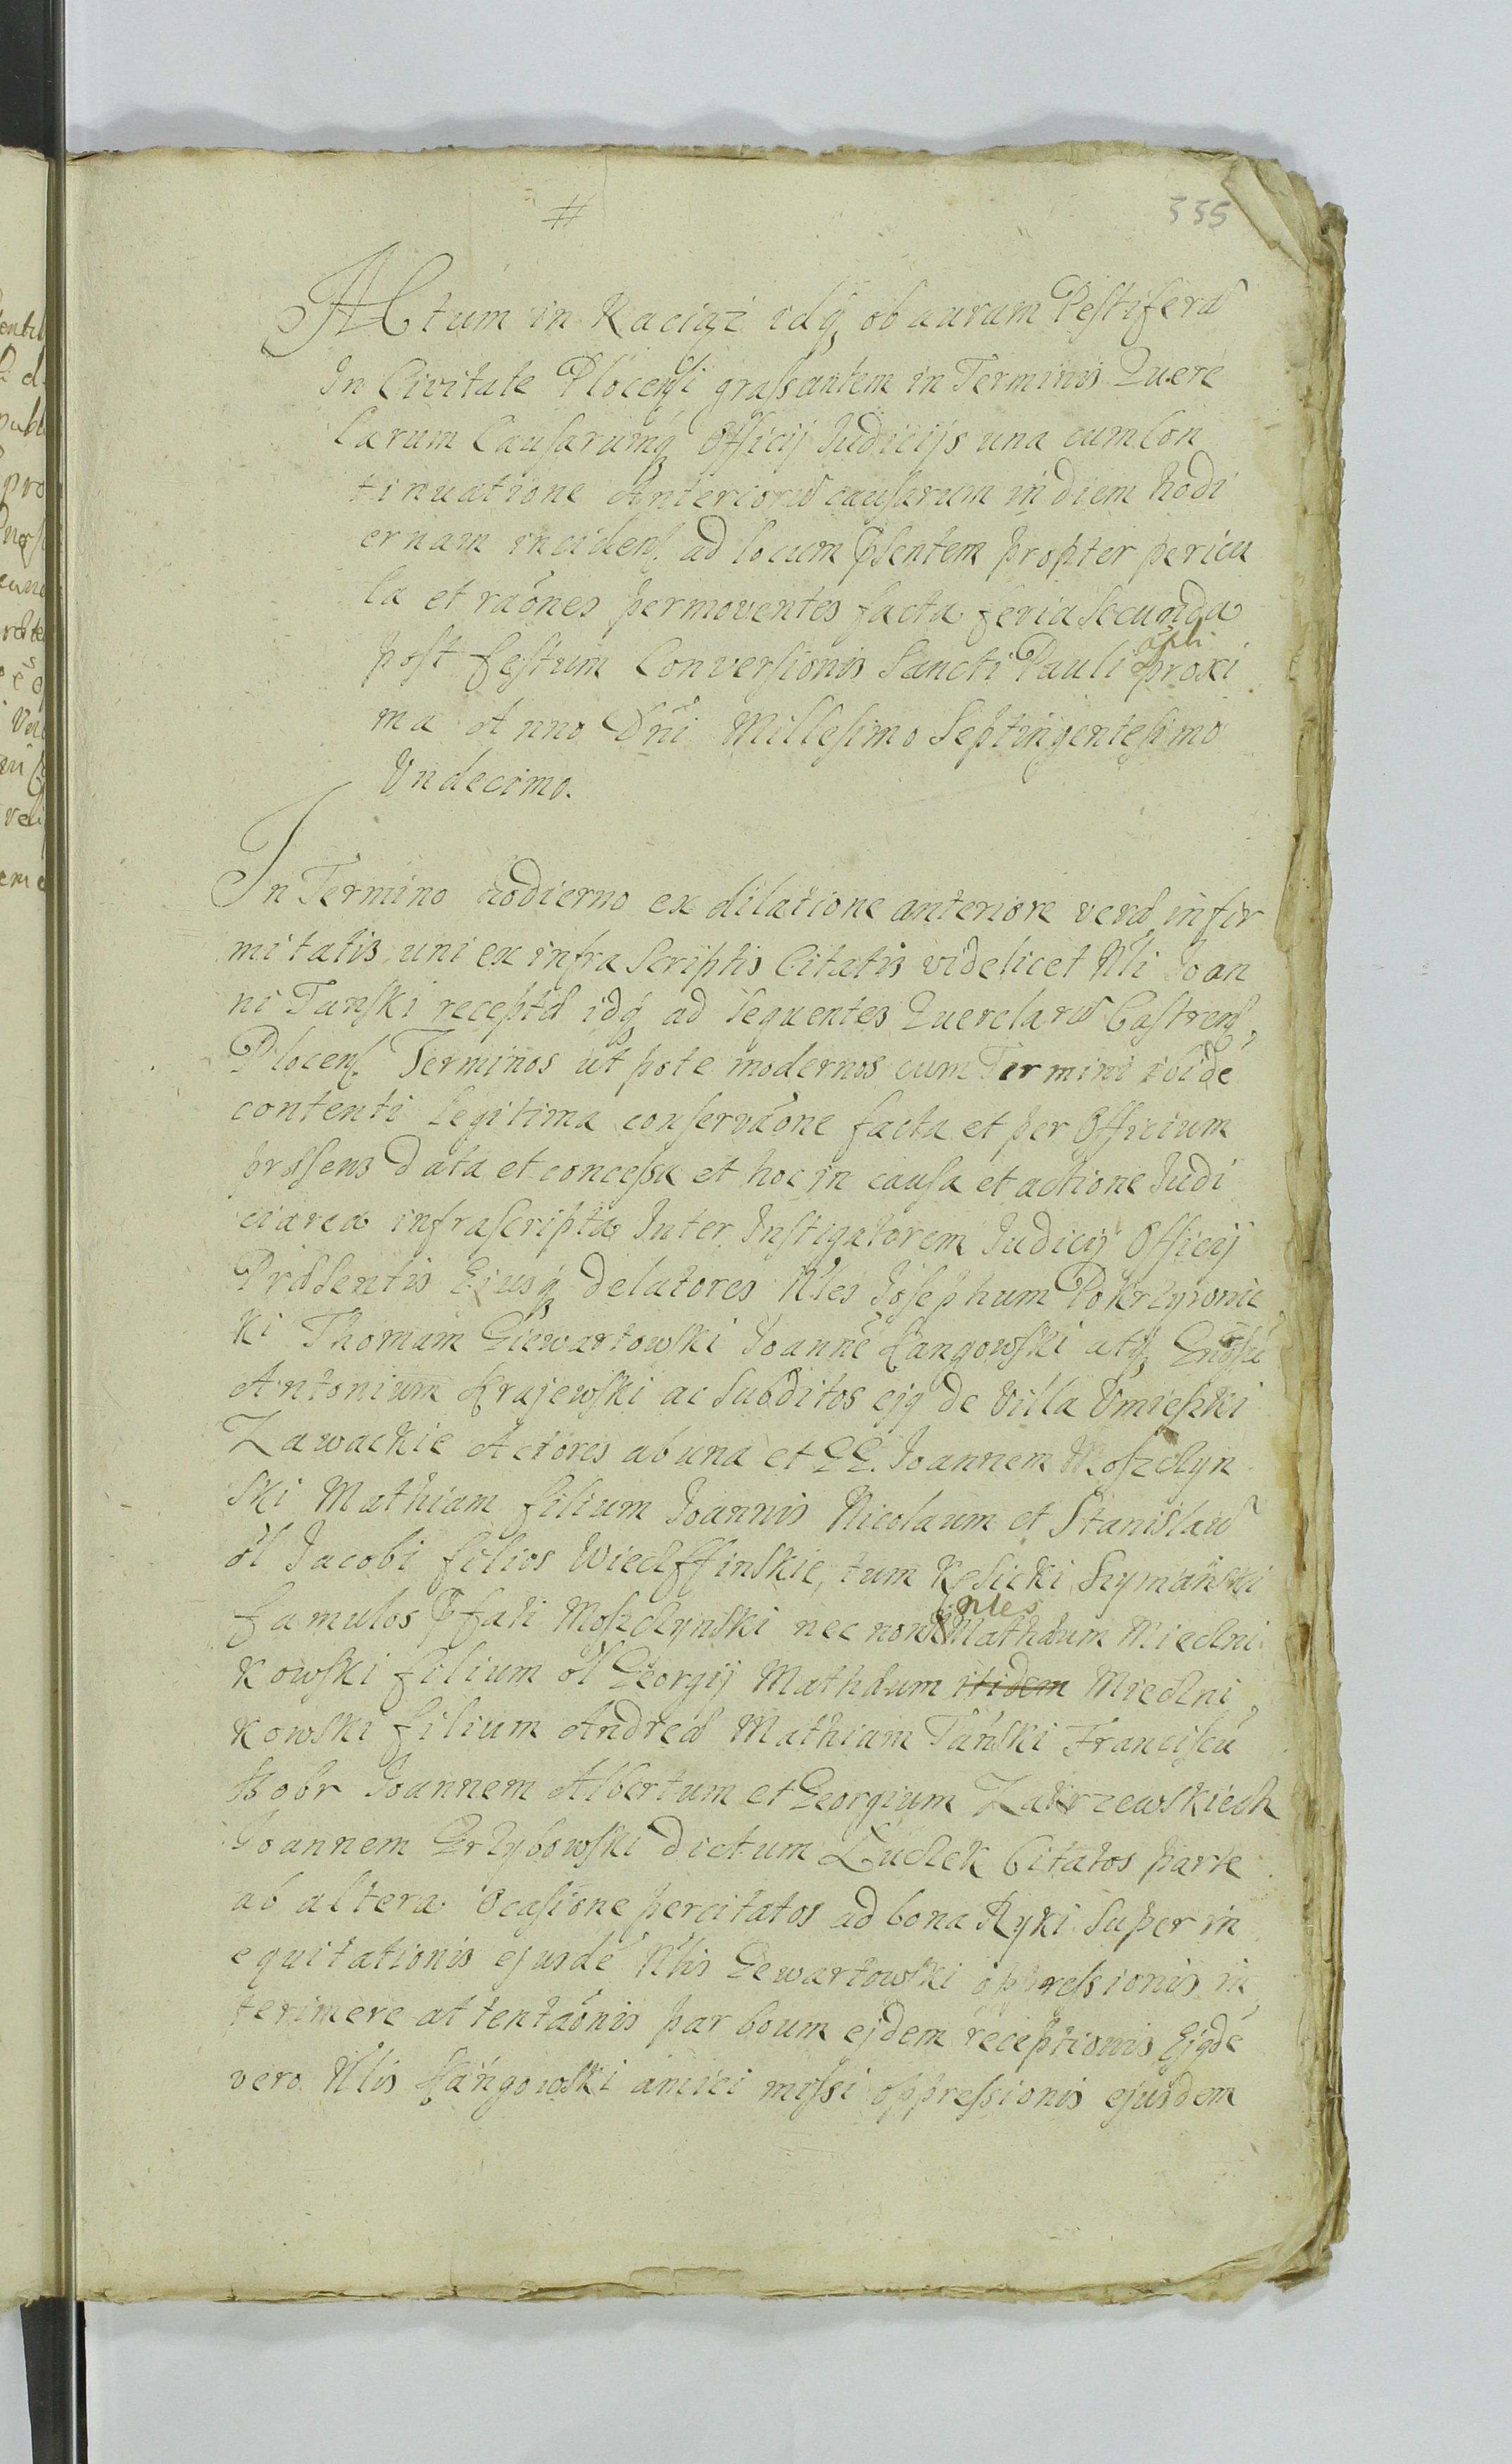 #
335
Actum in Raciąż idq, ob auram Pestiferã
In Civitate Plocensi grassantem in Terminis Quere
larum Causarumq, Officij Judicijs una cum Con
tinuatione Anteriorũ causarum in diem hodi
ernam inciden. ad locum psentem propter pericu
la et raõnes permoventes facta feria Secunda
post festum Conversionis Sancti Pauli apli proxi
ma Anno Dñi Millesimo Septingentesimo
Undecimo.
In Termino hodierno ex dilatione anteriore veræ infir
mitatis uni ex infra Scriptis Citatis videlicet Nli Joan
ni Tanski recepta idq, ad sequentes Querelarũ Castren,
Plocen. Terminos ut pote modernos cum Termini ibidẽ
contenti legitima conservaõne facta et per Officium
præsens data et concessa et hoc in causa et actione Judi
ciarea infrascripta Inter Instigatorem Judicij Officij
Præsentis Ejusq, delatores Nles Josephum Pokrzywnic
ki Thomam Giewartowski Joannẽ Łangowski atq, Gnõsũ
Antonium Krajewski ac Subditos ejq de Villa Umieszki
Zawackie Actores ab una et GG. Joannem Moszczyn
ski Mathiam filium Joannis Nicolaum et Stanislaũ
ol Jacobi filios Wieczffinskie, tum Kęsicki Szymański
famulos pfati Moszczynski nec non Nles Mathæum Mieczni
kowski filium ol Georgij Mathæum itidem Mieczni
kowski filium Andreæ Mathiam Tański Franciscũ
Bobr Joannem Albertum et Georgium Zakrzewskiech
Joannem Grzybowski dictum Łuczek Citatos parte
ab altera Ocasione percitatos ad bona Ryki Super in
equitationis ejusdẽ Nlis Gewartowski oppressionis in
terimere attentaõnis par boum ejdem receptionis Ejqdẽ
vero Nlis Łángowski amici missi oppressionis ejusdem